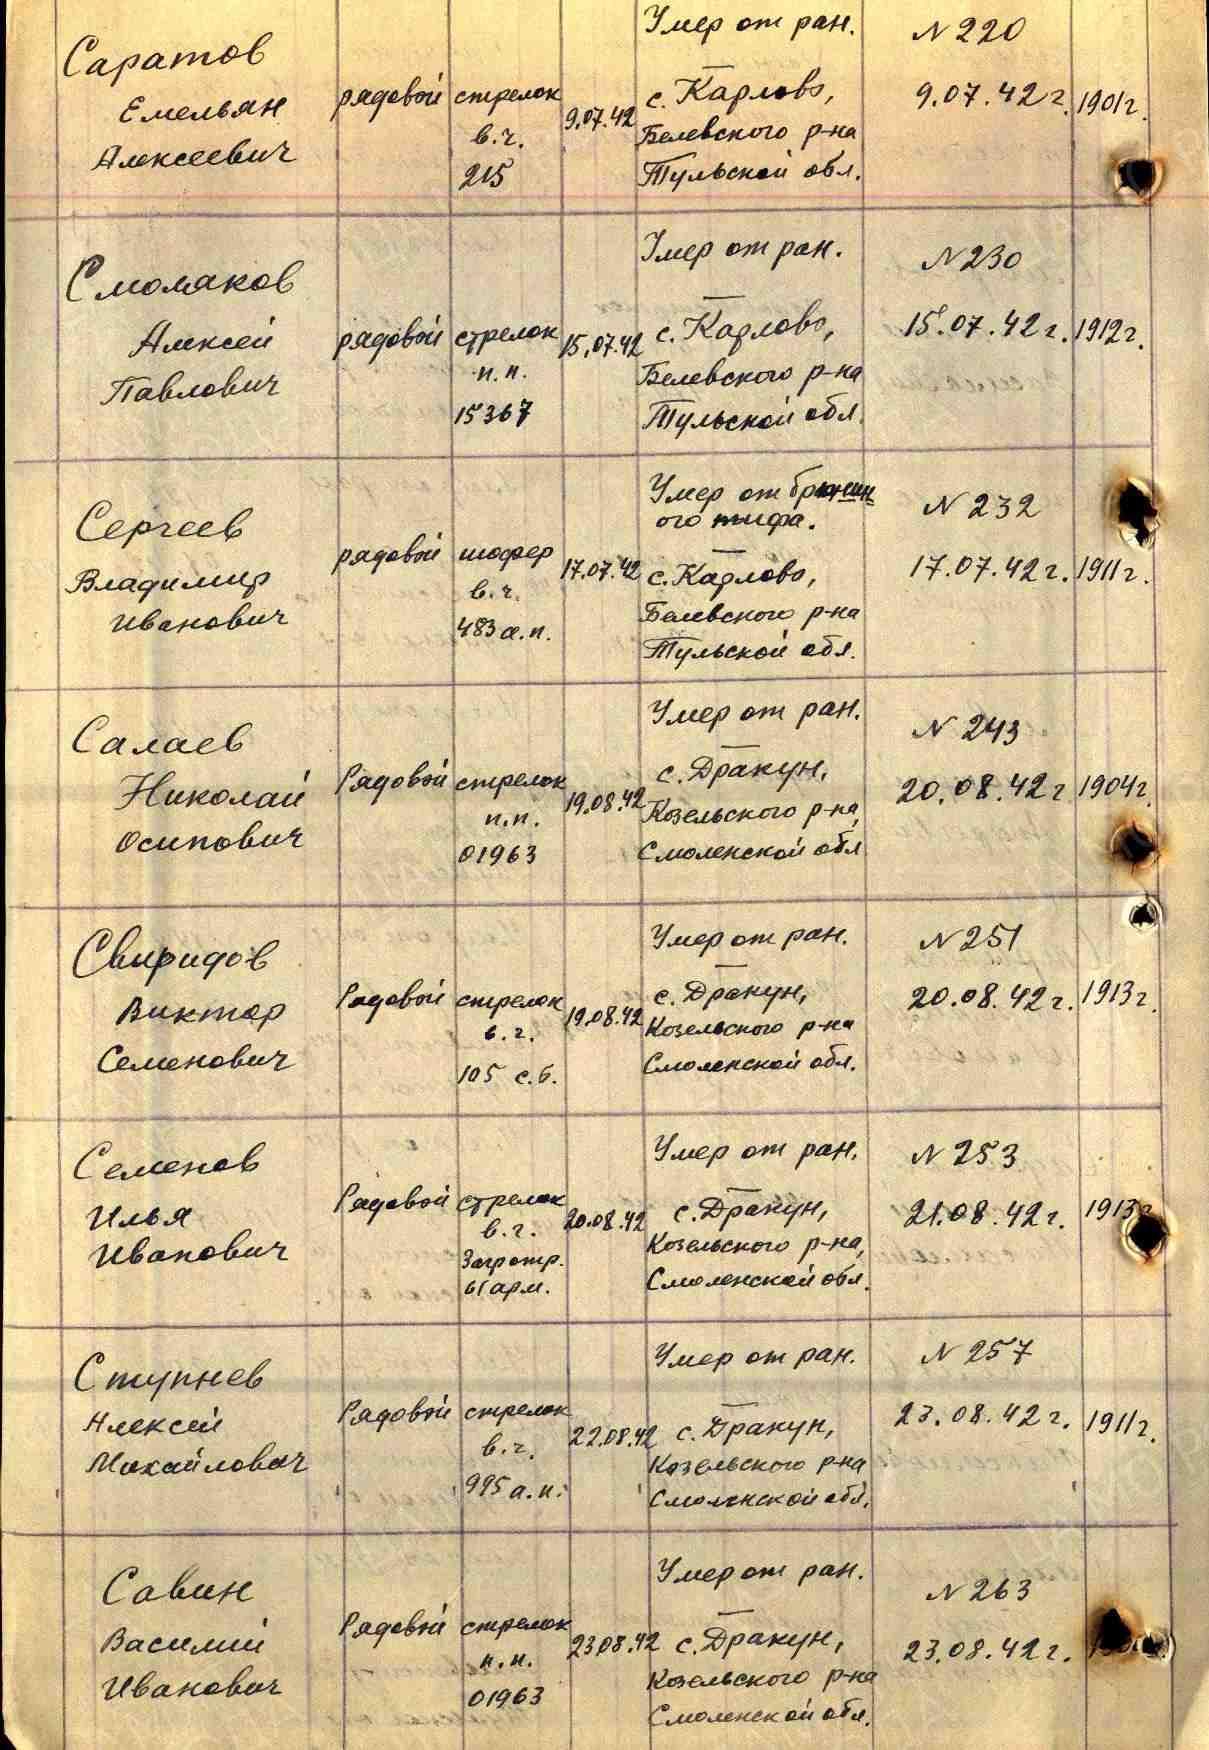 Умер от ран. N 220
Саратов
Емельян рядовой стрелок 9.07.42 с. Карлово, 9.07.42 г. 1901г.
в.ч. Белевского р-на
Алексеевич
215 Тульской обл.
Умер от ран. N 230
Смоляков
Алексей рядовой стрелок 15.07.42 с. Карлово, 15.07.42 г. 1912г.
Павлович п.п. Белевского р-на
15367 Тульской обл.
Умер от брюшн
ого тифа. N 232
Сергеев
Владимир рядовой шофер 17.07.42 с. Карлово, 17.07.42 г. 1911г.
Иванович в.ч. Белевского р-на
483 а.п. Тульской обл.
Умер от ран. N 243
Салаев
Николай Рядовой стрелок 19.08.42 с. Дракун, 20.08.42 г 1904г.
Осипович п.п. Козельского р-на,
01963 Смоленской обл
Умер от ран. N 251
Свиридов
Виктор Рядовой стрелок 19.08.42 с. Дракун, 20.08.42 г. 1913г.
в.ч. Козельского р-на
Семенович 105 с.б. Смоленской обл.
Умер от ран. N 253
Семенов
Илья Рядовой стрелок 20.08.42 с. Дракун, 21.08.42 г. 1913
Иванович в.ч. Козельского р-на,
Загротр.
61 арм. Смоленской обл.
Умер от ран. N 257
Ступнев
Алексей Рядовой стрелок 22.08.42 с. Дракун, 23.08.42 г. 1911г.
Михайлович в.ч. Козельского р-на
995 а.п. Смоленской обл.
Умер от ран. N 263
Савин
Василий Рядовой стрелок 23.08.42 с. Дракун, 23.08.42 г.
Иванович п.п. Козельского р-на
01963 Смоленской обл.